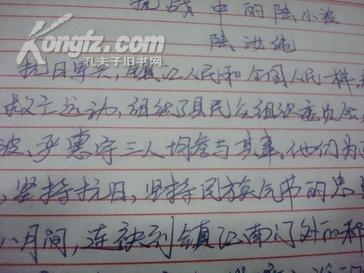 抗战中的陆小波
Kongfz.com
孔夫子旧书网
陆洪纯
抗日军兴,镇江人民和全国人民一样,
救亡运动,组织了县民众组织委员会,
波、严惠宇三人均参与其事。他们为
,坚持抗日,坚持民族气节的
八月间,连袂到镇江南门外
Kongfz.com